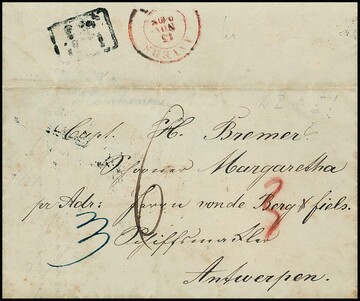 ANVERS
13
NOV.
Capt. H. Bremer.
Schooner Margaretha
pr Adr: Herrn von de Berg & fiels.
Schiffsmackler
Antwerpen.
6
3
3